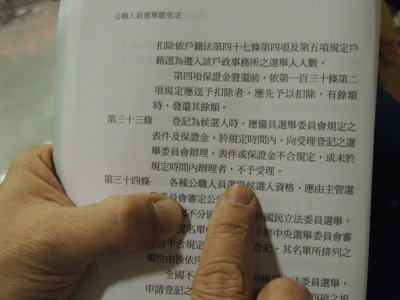 公職人員選舉罷免法
扣除依戶籍法第四十七條第四項及第五項規定戶
籍逕為遷入該戶政事務所之選舉人人數。
第四項保證金發還前,依第一百三十條第二
項規定應逕予扣除者,應先予以扣除,有餘額
時,發還其餘額。
第三十三條 登記為候選人時,應備具選舉委員會規定之
表件及保證金,於規定時間內,向受理登記之選
舉委員會辦理。表件或保證金不合規定,或未於
規定時間內辦理者,不予受理。
第三十四條 各種公職人員選舉候選人資格,應由主管選
舉委員會審定公
不分區 外國民立法委員選舉,
政黨名單 經中央選舉委員會審
有不合規定 登記,其名單所排列之
順位由後依
全國不 外國 立法委員選舉,
申請登記之